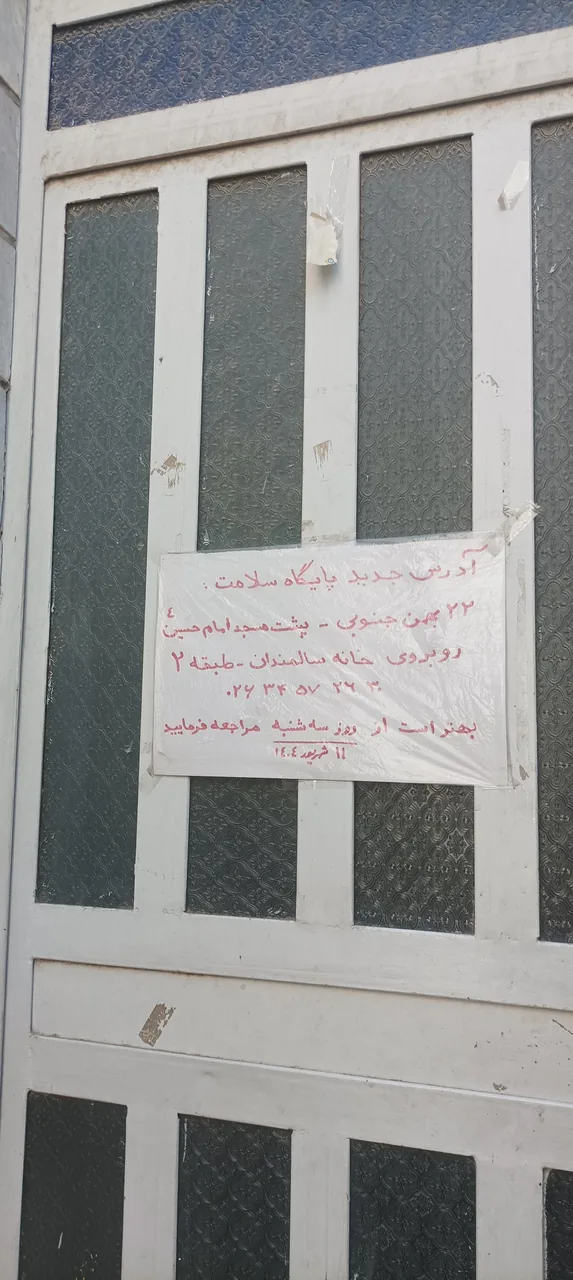 آدرس جدید پایگاه سلامت :
۲۲ بهمن جنوبی - پشت مسجد امام حسین ع
روبروی خانه سالمندان - طبقه ۲
۰۲۶ ۳۴ ۵۷ ۲۶ ۳۰
بهتر است از روز سه شنبه مراجعه فرمایید
۱۱ شهریور ۱۴۰۴